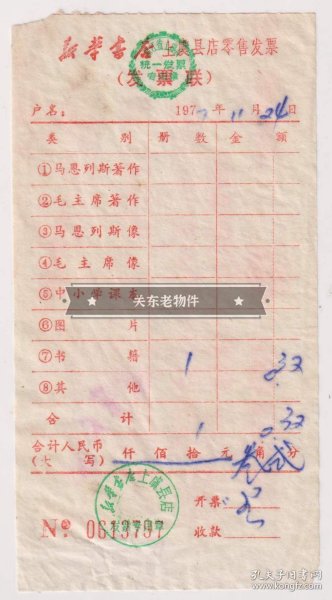 新华书店上虞县店零售发票
统一发票
(发票联)
户名: 197 年 11 月 24 日
类 别 册 数 金 额
①马恩列斯著作
②毛主席著作
③马恩列斯像
④毛 主 席 像
⑤中小学课本
关东老物件
⑥图 片
⑦书 籍 1 0.32
⑧其 他
合 计 1 0.32
合计人民币
(大 写) 仟 佰 拾 元 叁角 贰分
新华书店上虞县店
发票专用章
开票:
收款
No 0613797
孔夫子旧书网